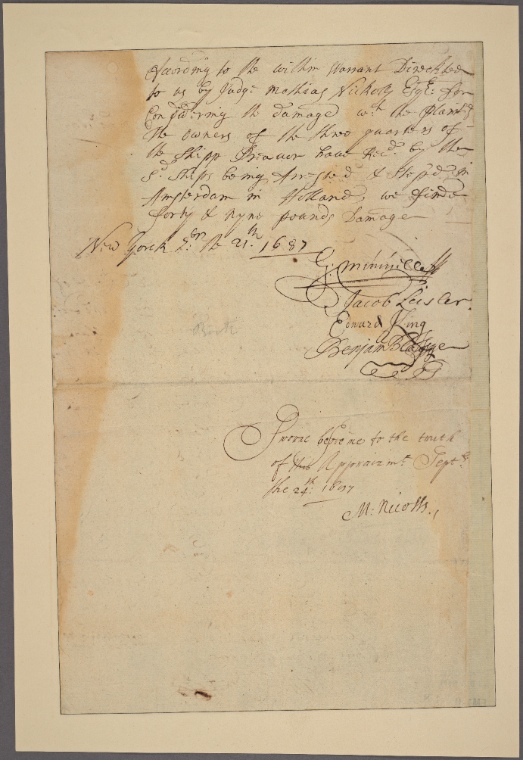 According to the within warrant Directted
to us by Judge Mathias Nicholls Esqr: for
Considering the damage wch the Plant:
the owners of the three quarters of
the Shipp Beaver have Recd. by the
sd. Ships being Arrested & stopd. in
Amsterdam in Holland, we finde
forty & nyne pounds Damage
New Yorck 7br: the 21:th 1687
G: Minvielle
Jacob Leisler.
Edward King
Benjam Blagge
Sworne before me to the truth
of this Appraizmt. Septr.
the 24th. 1687
M: Nicolls.,